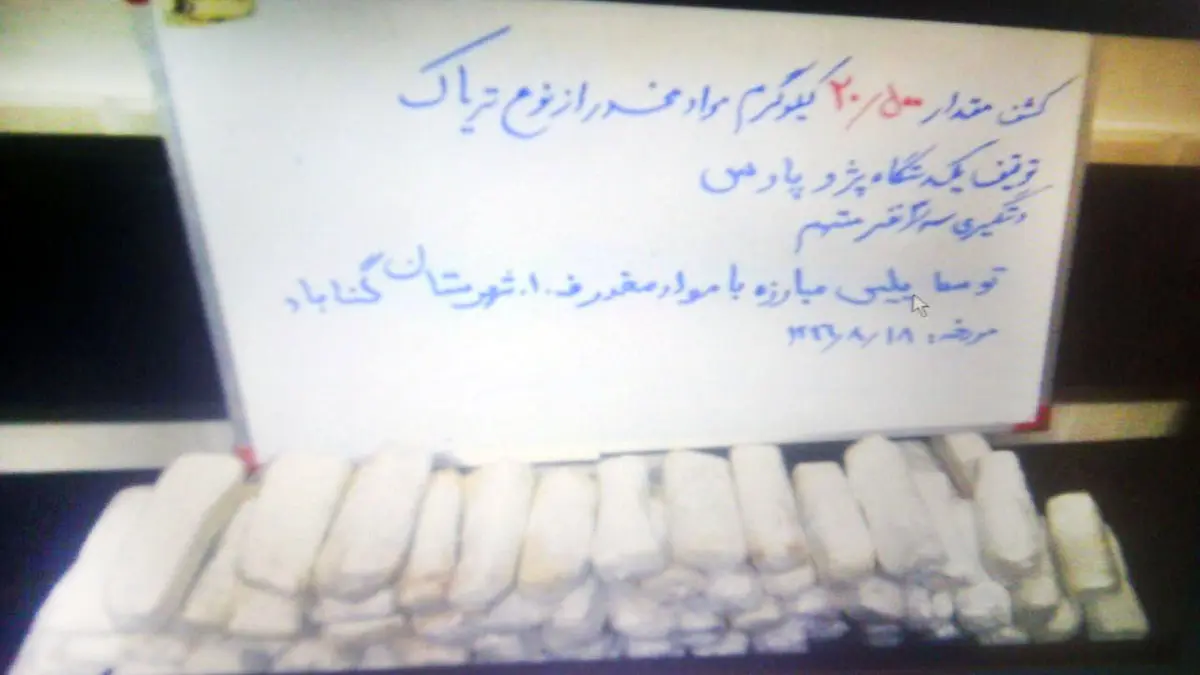 کشف مقدار ۲۰/۵۰۰ کیلوگرم مواد مخدر از نوع تریاک
توقیف یکدستگاه پژو پارس
دستگیری سه نفر متهم
توسط پلیس مبارزه با مواد مخدر ف.ا.شهرستان گناباد
مورخه: ۱۸/۸/